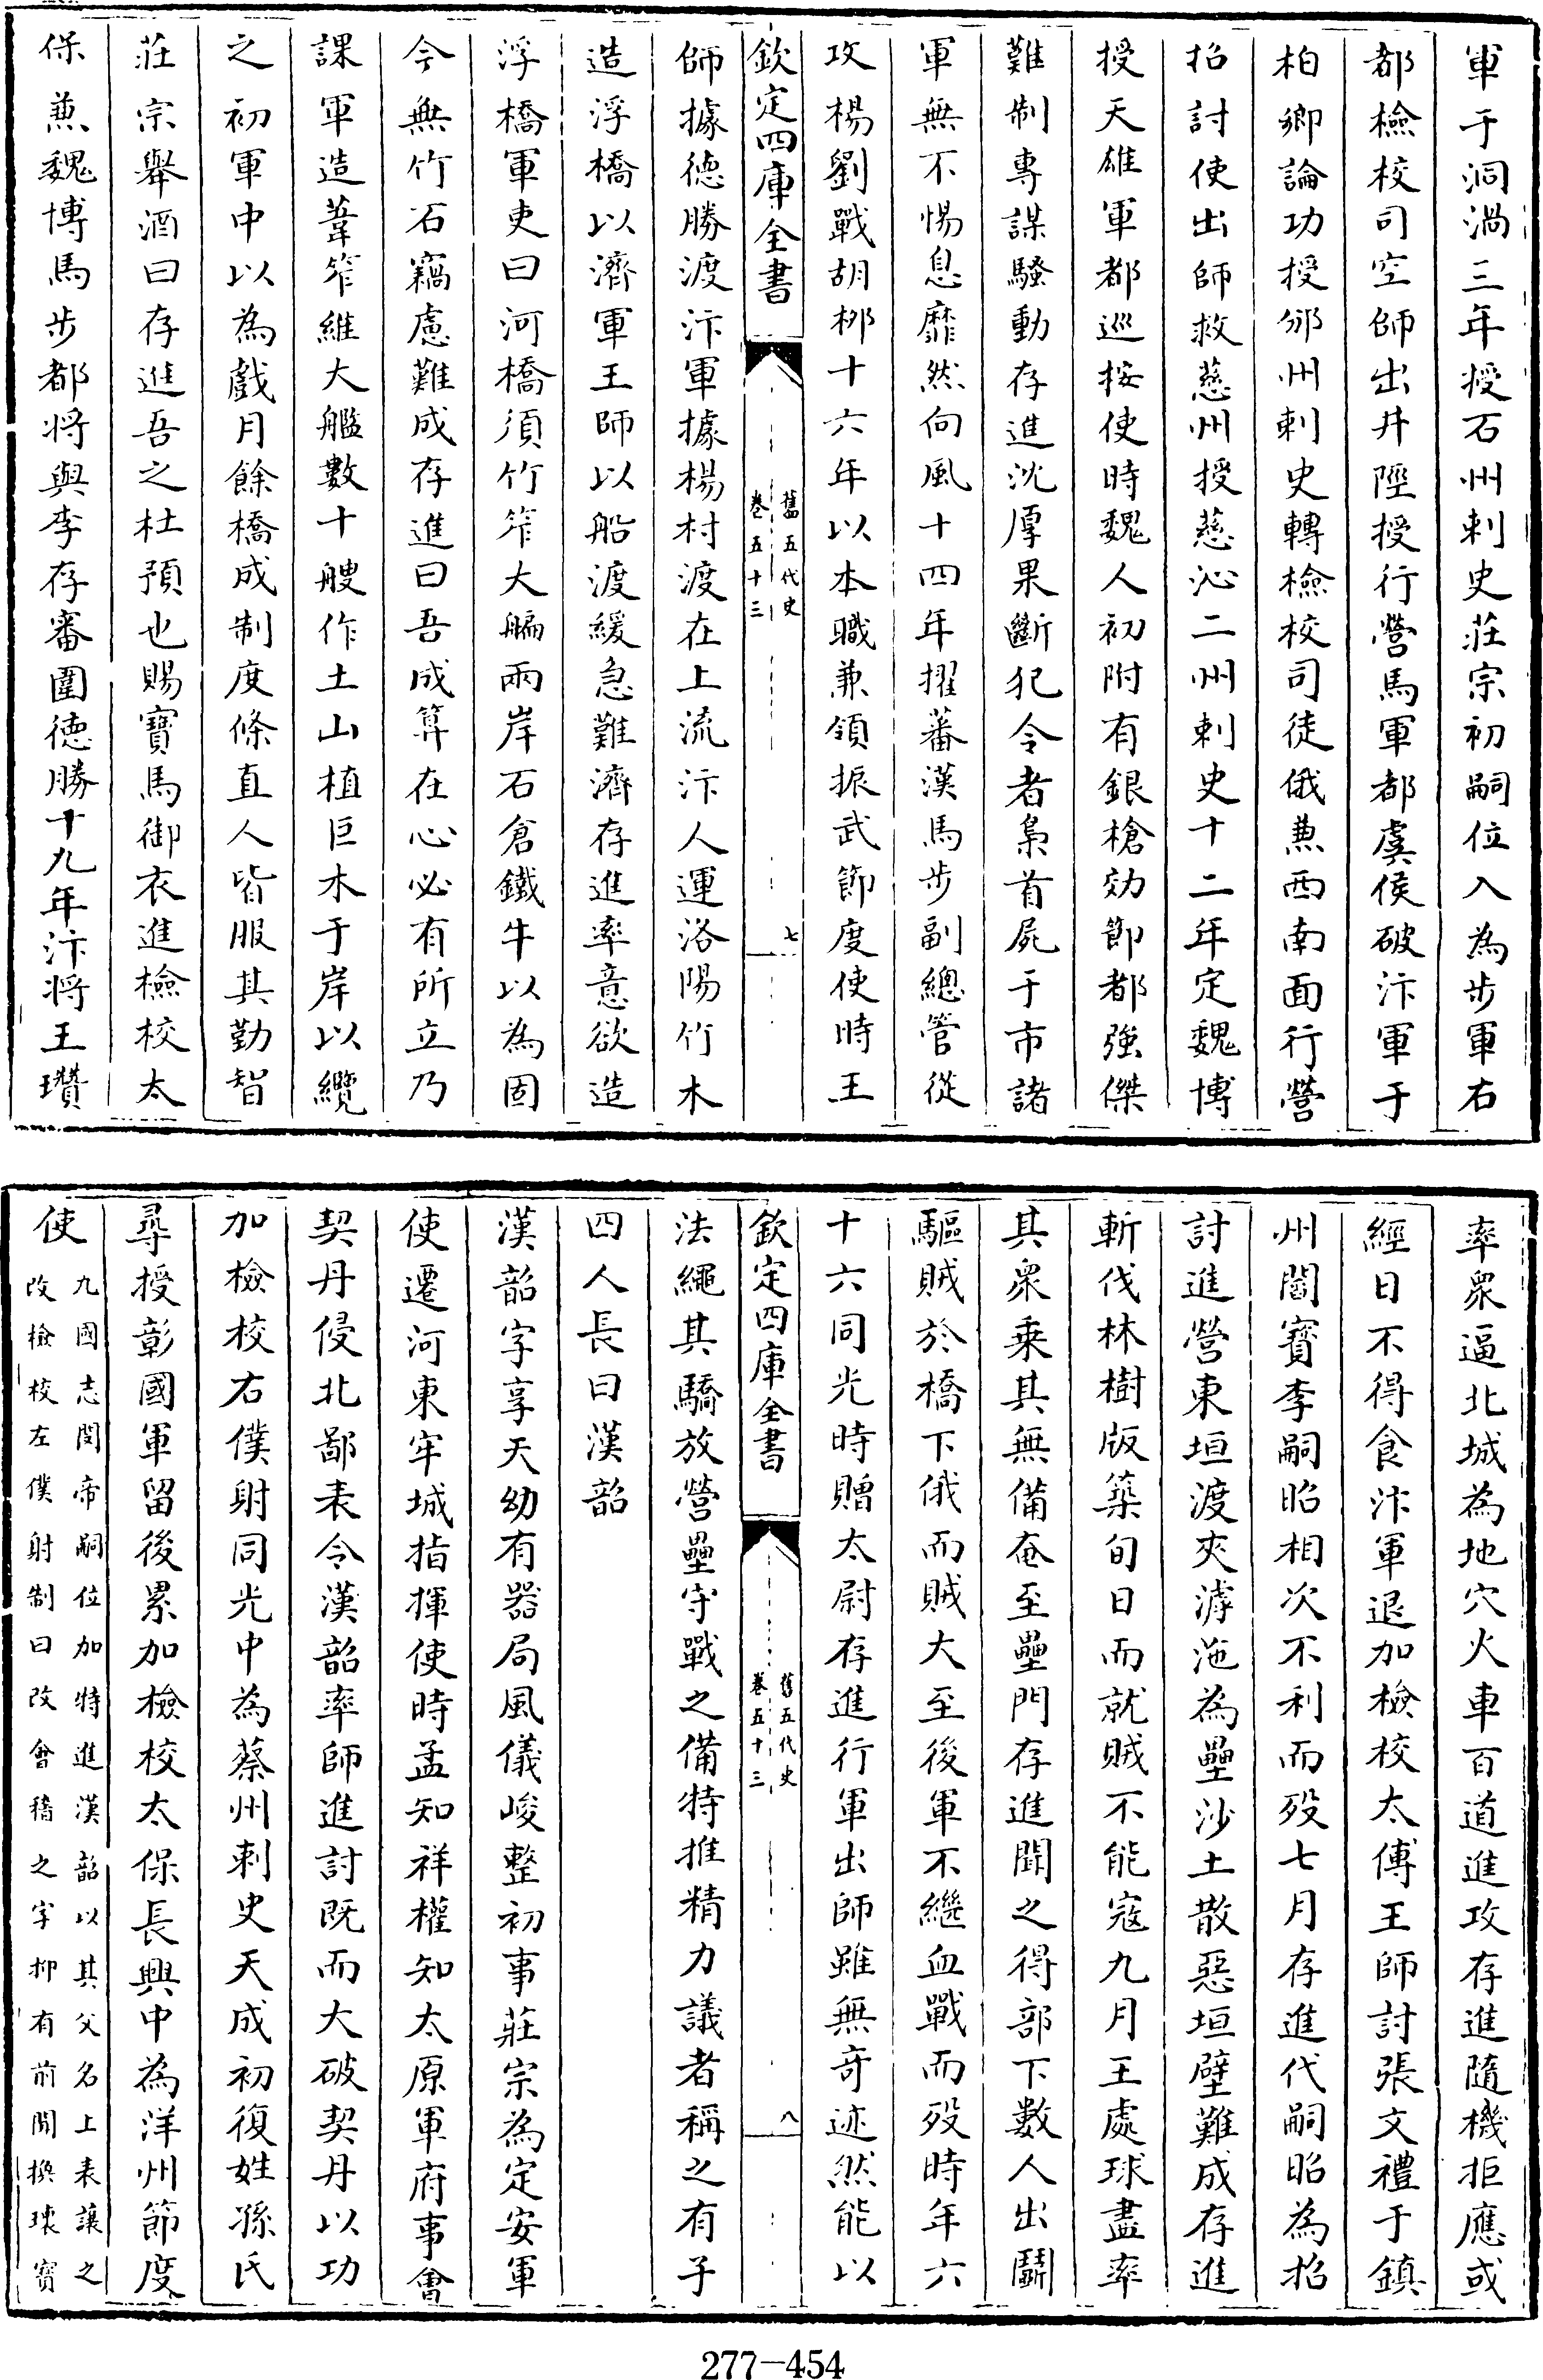 軍于洞渦三年授石州刺史莊宗初嗣位入為步軍右
都檢校司空師出井陘授行營馬軍都虞侯破汴軍于
柏鄉論功授邠州刺史轉檢校司徒俄兼西南面行營
招討使出師救慈州授慈沁二州刺史十二年定魏博
授天雄軍都巡按使時魏人初附有銀槍効節都強傑
難制專謀騷動存進沈厚果斷犯令者梟首屍于市諸
軍無不惕息靡然向風十四年擢蕃漢馬步副總管從
攻楊劉戰胡柳十六年以本職兼領振武節度使時王
欽定四庫全書
舊五代史
卷五十三
七
師據德勝渡汴軍據楊村渡在上流汴人運洛陽竹木
造浮橋以濟軍王師以船渡緩急難濟存進率意欲造
浮橋軍吏曰河橋須竹笮大艑兩岸石倉鐵牛以為固
今無竹石竊慮難成存進曰吾成算在心必有所立乃
課軍造葦笮維大艦數十艘作土山植巨木于岸以纜
之初軍中以為戲月餘橋成制度條直人皆服其勤智
莊宗舉酒曰存進吾之杜預也賜寶馬御衣進檢校太
保兼魏博馬步都將與李存審圍德勝十九年汴將王瓚
率眾逼北城為地穴火車百道進攻存進隨機拒應或
經日不得食汴軍退加檢校太傅王師討張文禮于鎮
州閻寶李嗣昭相次不利而歿七月存進代嗣昭為招
討進營東垣渡夾滹沲為壘沙土散惡垣壁難成存進
斬伐林樹版築旬日而就賊不能寇九月王處球盡率
其眾乘其無備奄至壘門存進聞之得部下數人出鬬
驅賊於橋下俄而賊大至後軍不繼血戰而歿時年六
十六同光時贈太尉存進行軍出師雖無奇迹然能以
欽定四庫全書
舊五代史
卷五十三
八
法繩其驕放營壘守戰之備特推精力議者稱之有子
四人長曰漢韶
漢韶字享天幼有器局風儀峻整初事莊宗為定安軍
使遷河東牢城指揮使時孟知祥權知太原軍府事會
契丹侵北鄙表令漢韶率師進討既而大破契丹以功
加檢校右僕射同光中為蔡州刺史天成初復姓孫氏
尋授彰國軍留後累加檢校太保長興中為洋州節度
使
九國志閔帝嗣位加特進漢韶以其父名上表讓之
改檢校左僕射制曰改會稽之字抑有前聞換瓌寶
277-454